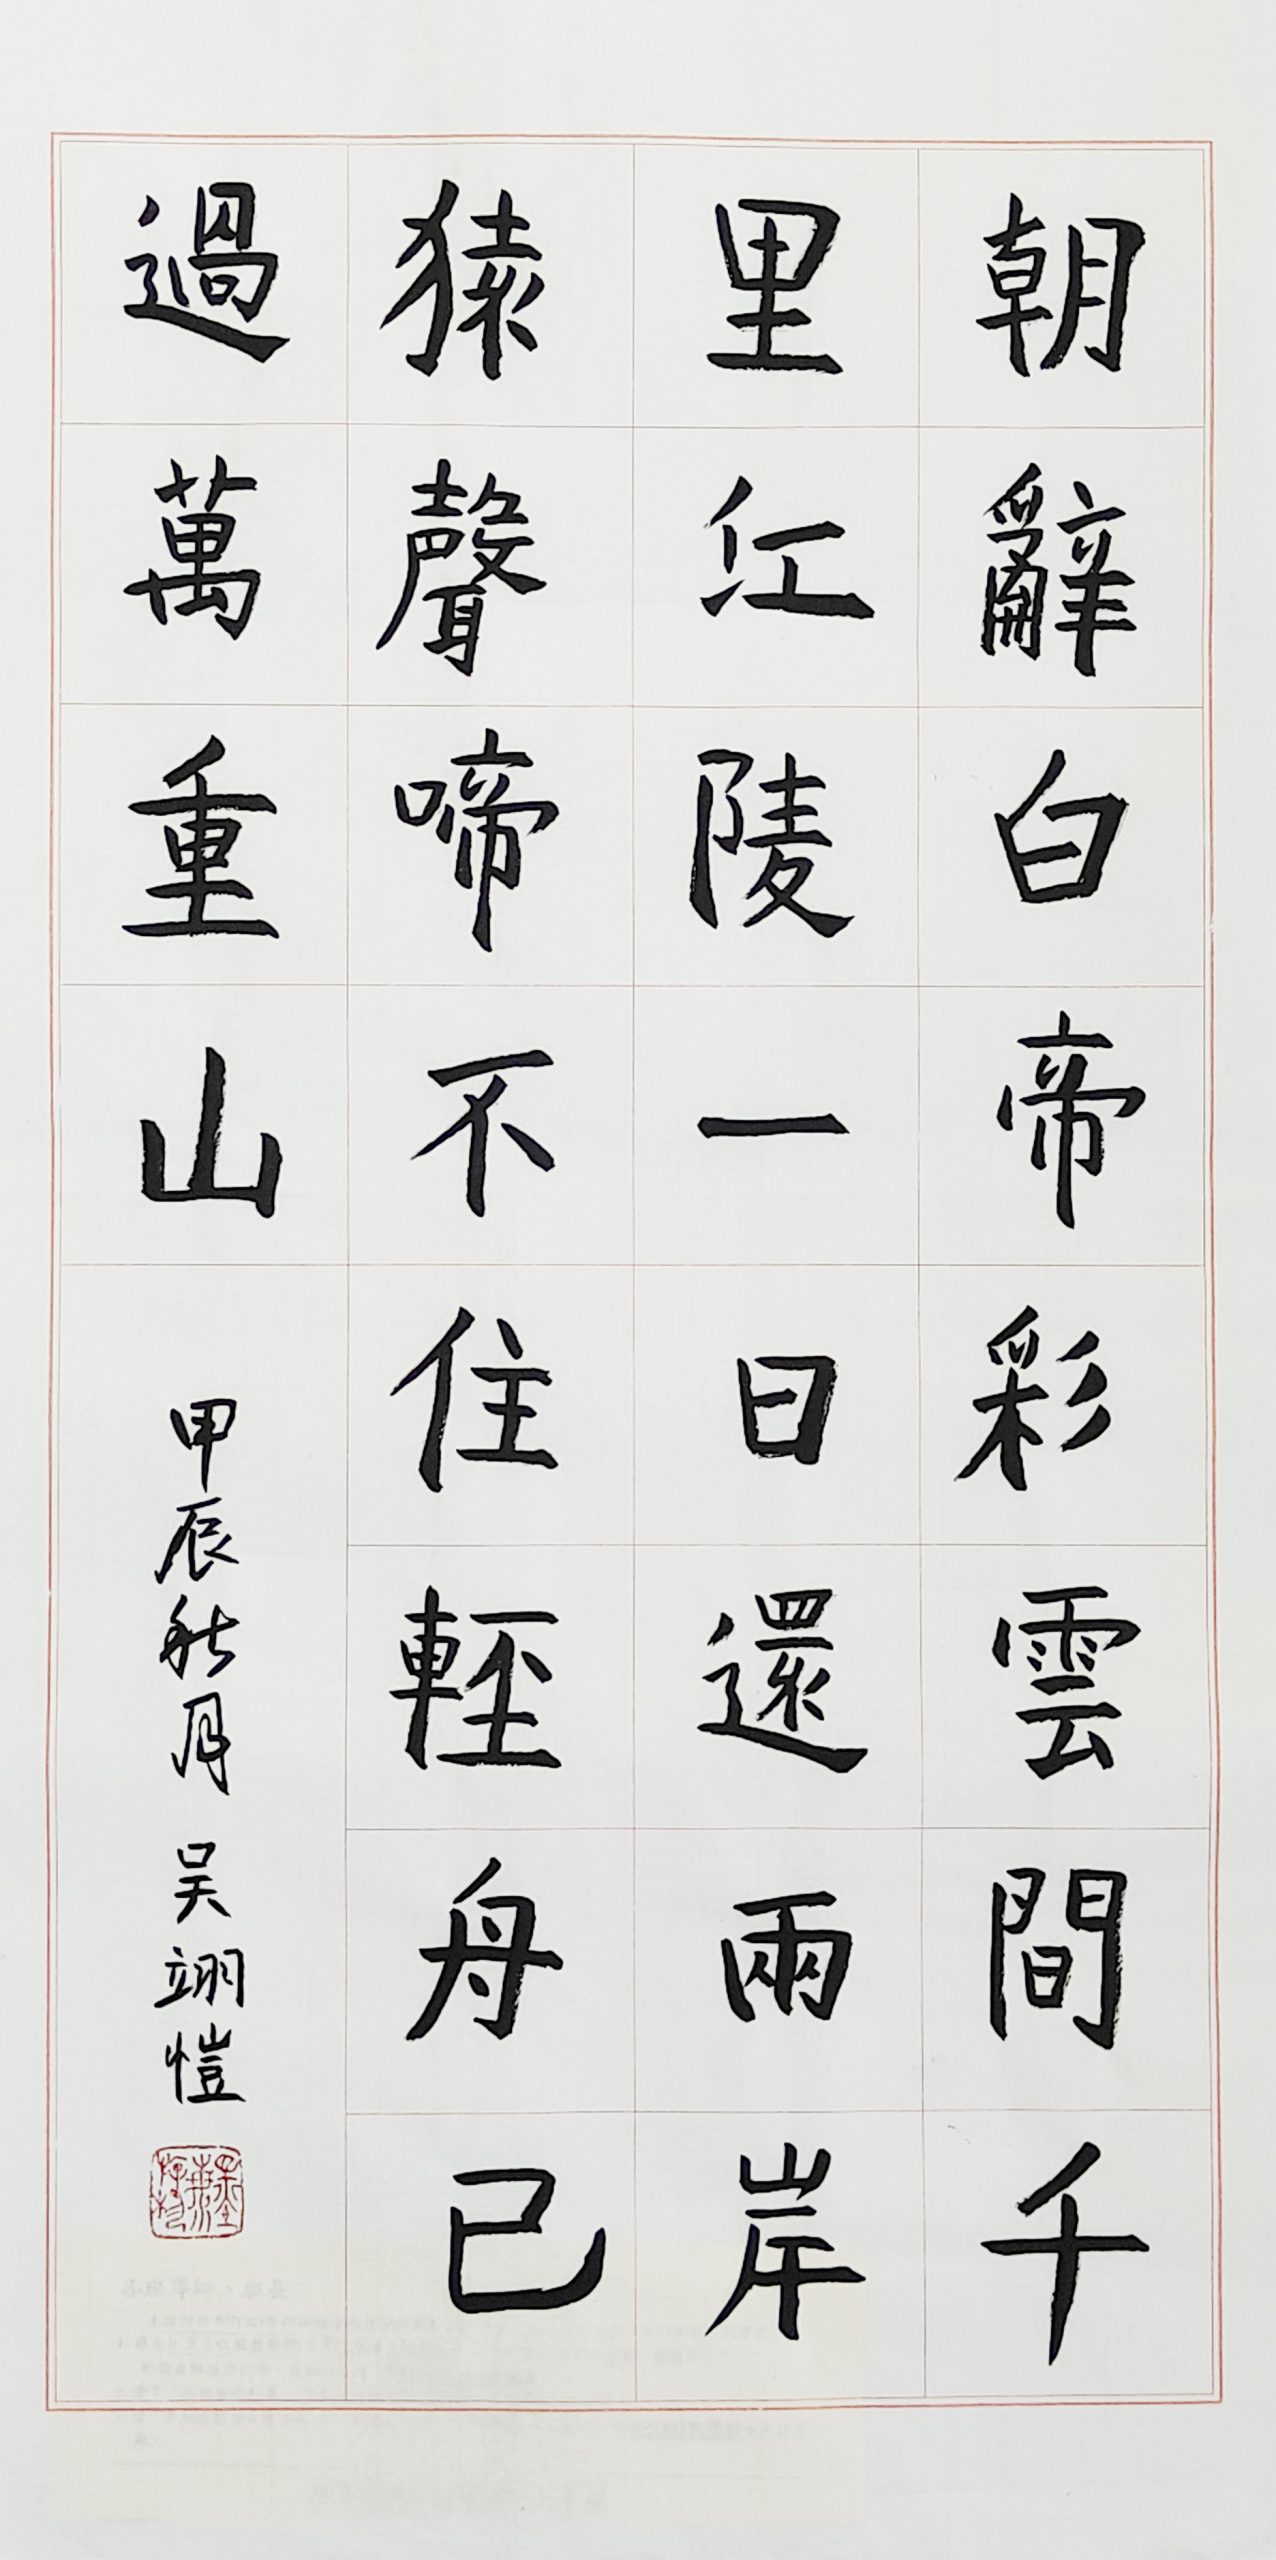 朝辭白帝彩雲間千
里江陵一日還兩岸
猿聲啼不住輕舟已
過萬重山
甲辰秋月 吳翊愷